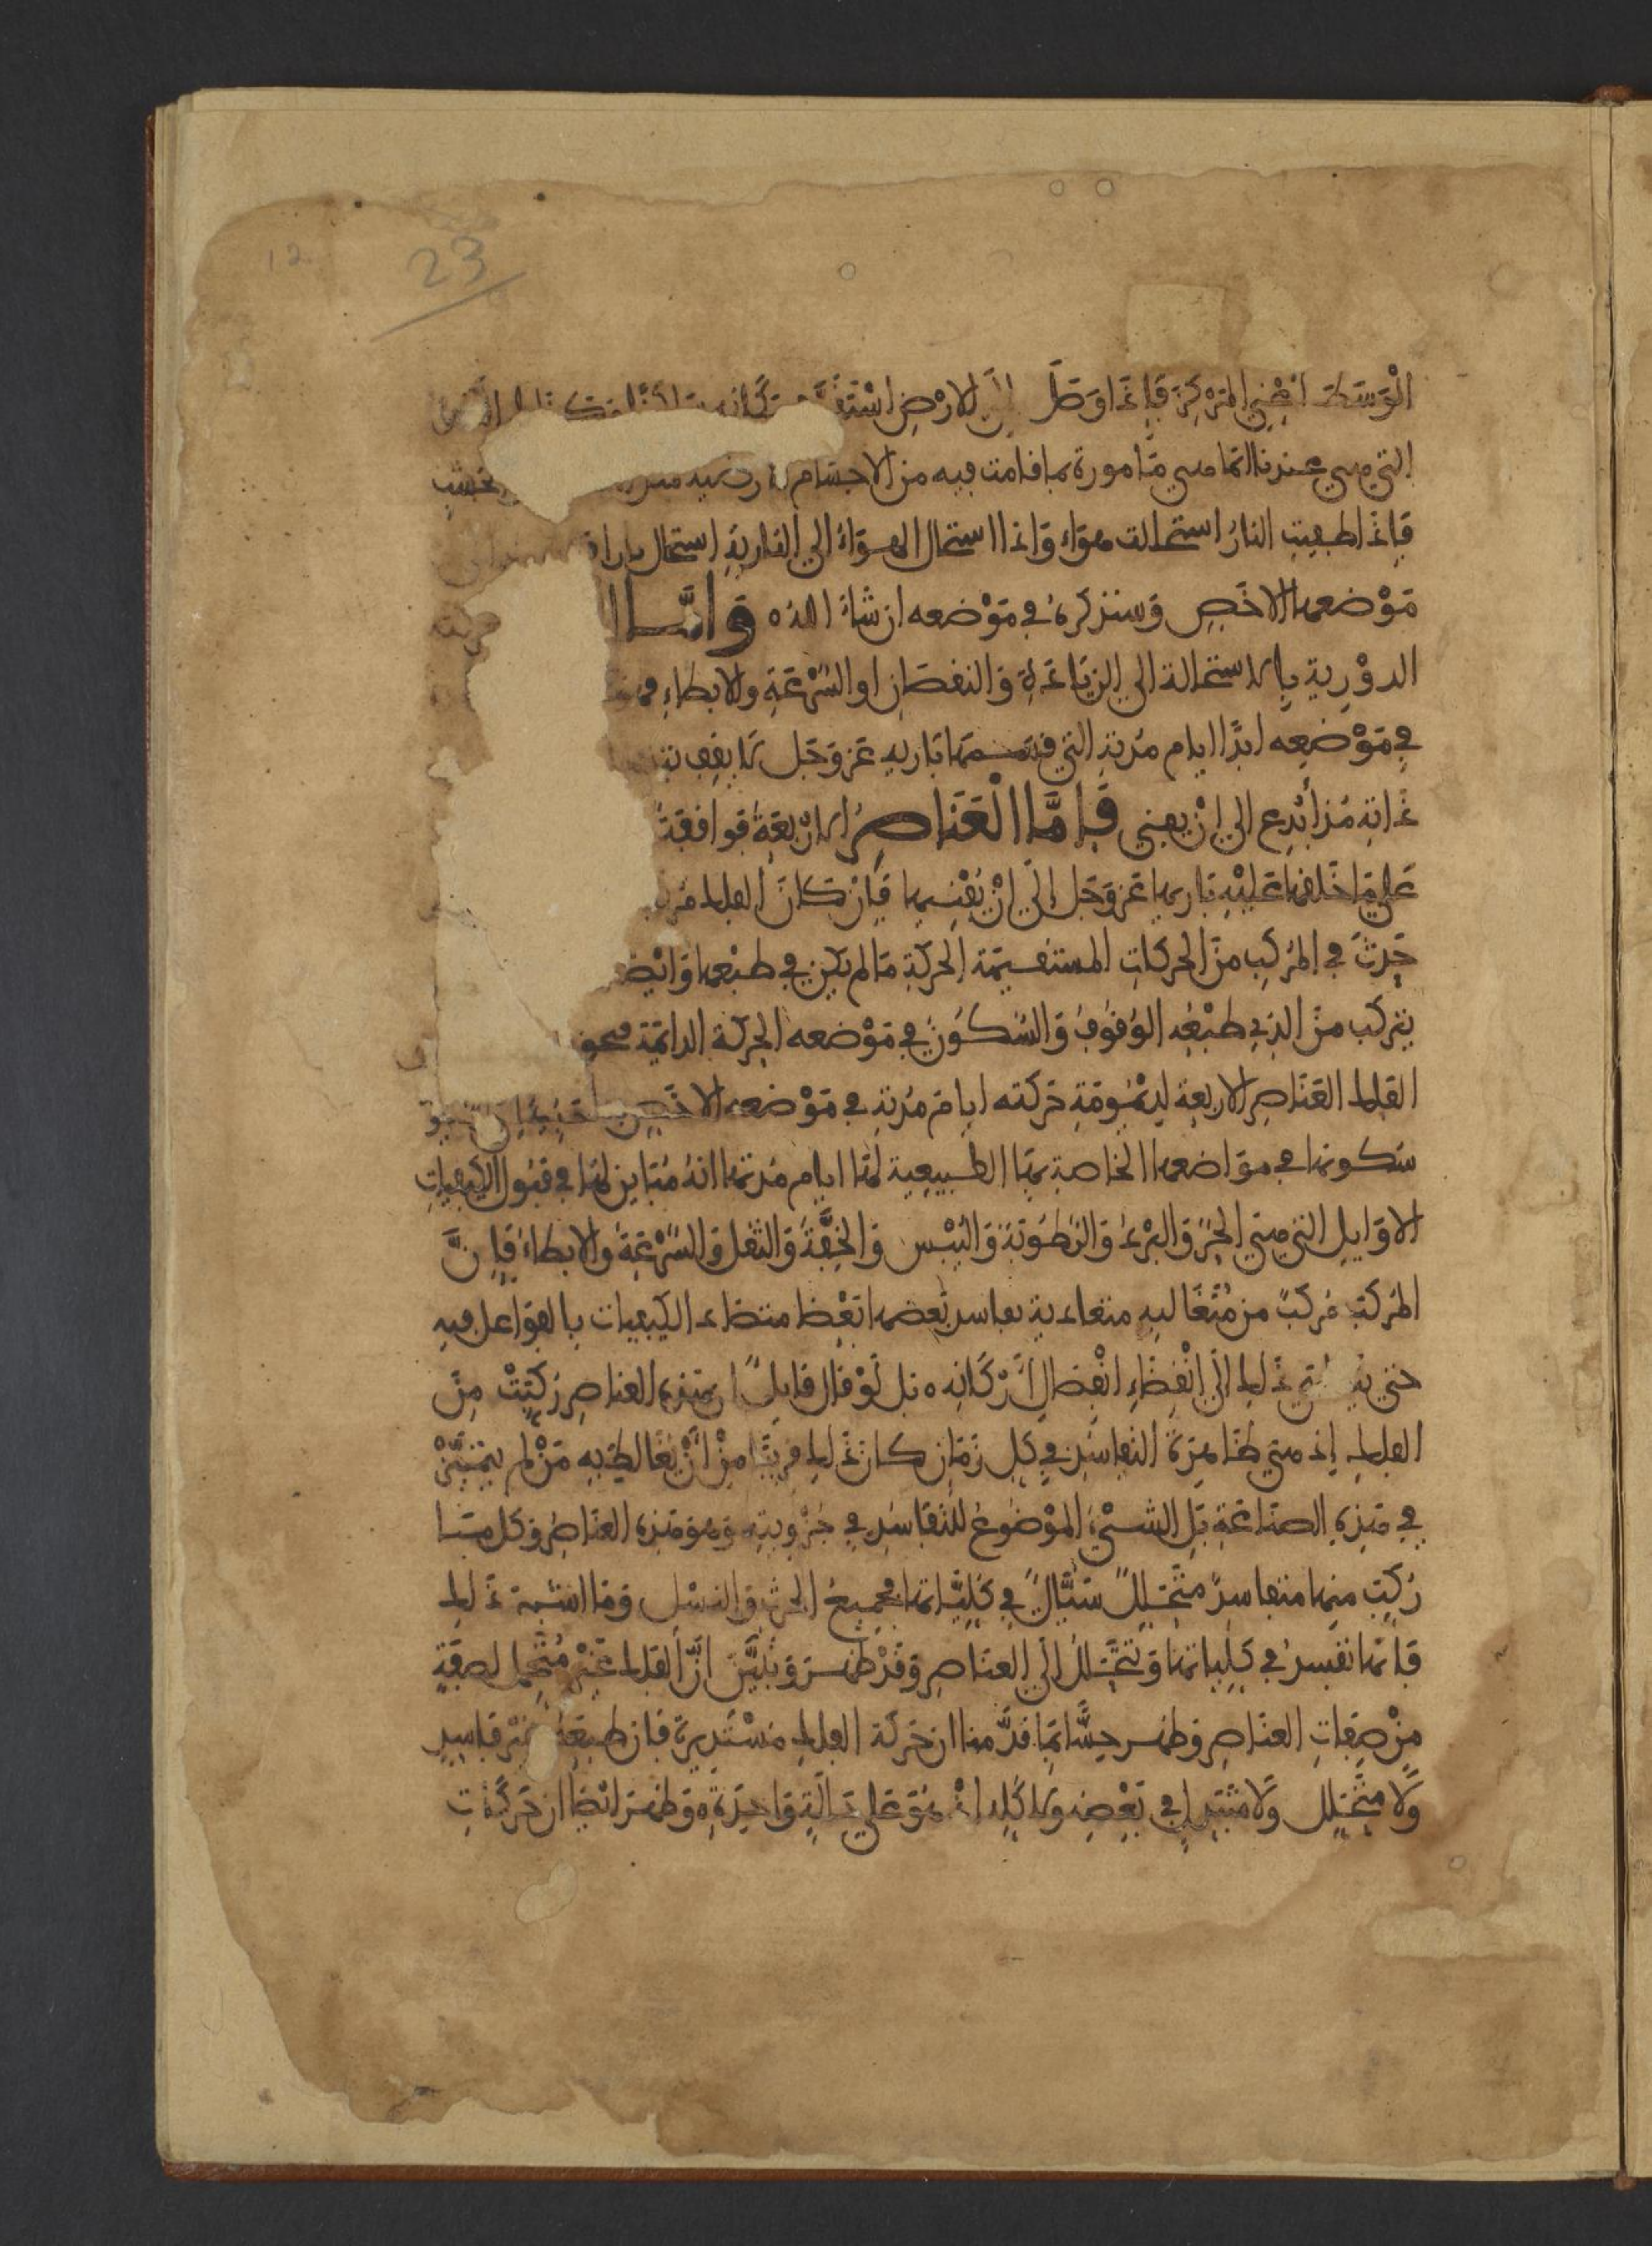 12 23
الوسط اعني المركز فإذا وصل إلى الارض استقر
التي هي عندنا انما هي مأمورة بما قامت فيه من الاجسام الارضية
فإذا طفيت النار استحالت هواء وإذا استحال الهواء الى النارية استحال
موضعها الاخص وسنذكره في موضعه ان شاء الله وأما
الدورية بلا استحالة الى الزيادة والنقصان او السرعة والابطاء
في موضعه ابدا ايام مدته التي قسمها باريه عز وجل لا يقف
ذاته مذ أبدع الى ان يفنى فاما العناصر الاربعة فواقفة
على ما خلقها عليه باريها عز وجل إلى ان يفنيها فإن كان الفلك
حدث في المركب من الحركات المستقيمة الحركة ما لم يكن في طبعها وايضا
يتركب من الذي طبعه الوقوف والسكون في موضعه الحركة الدائمة
الفلك العناصر الاربعة لديمومة حركته ايام مدته في موضعه الاخص
سكونها في مواضعها الخاصة بها الطبيعية لها ايام مدتها انه مباين لها في قبول الكيفيات
الاوايل التي هي الحر والبرد والرطوبة واليبس والخفة والثقل والسرعة والابطاء فإن
المركب مركب من متغالبه متعادية يفاسد بعضها بعضا متضاد الكيفيات بالفواعل فيه
حتى ذلك إلى انقضاء انفصال أركانه بل لو قال قايل ان هذه العناصر ركبت من
الفلك إذ هي ظاهرة التفاسد في كل زمان كان ذلك قريبا من أن يغالط به من لم يتميز
في هذه الصناعة بل الشيء الموضوع للتفاسد في جزويته وهو هذه العناصر وكل ما
ركب منها متفاسد متحلل سيال في كلياتها فجميع الحرث والنسل وما اشبه ذلك
فانها تفسد في كلياتها وتتحلل إلى العناصر وقد ظهر وتبين أن الفلك غير متحمل لصفة
من صفات العناصر وظهر حسا بما قدمنا ان حركة الفلك مستديرة فإن طبيعة غير فاسد
ولا متحلل ولا متبدل في بعضه ولا كله اذ هو على حالة واحدة وظهر ايضا ان حركات